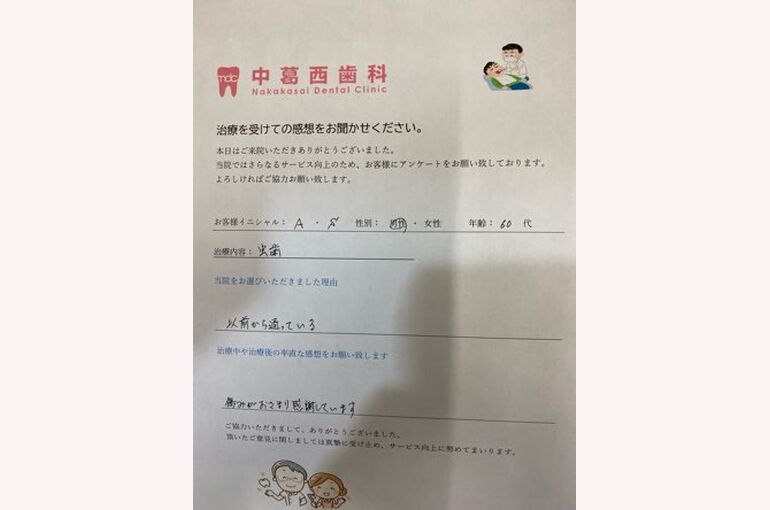 mdc 中葛西歯科
Nakakasai Dental Clinic
治療を受けての感想をお聞かせください。
本日はご来院いただきありがとうございました。
当院ではさらなるサービス向上のため、お客様にアンケートをお願い致しております。
よろしければご協力お願い致します。
お客様イニシャル： A ・ 性別： 男性 ・ 女性 年齢： 60 代
治療内容： 虫歯
当院をお選びいただきました理由
以前から通っている
治療中や治療後の率直な感想をお願い致します
痛みがおさまり感謝しています
ご協力いただきまして、ありがとうございました。
頂いたご意見に関しましては真摯に受け止め、サービス向上に努めてまいります。